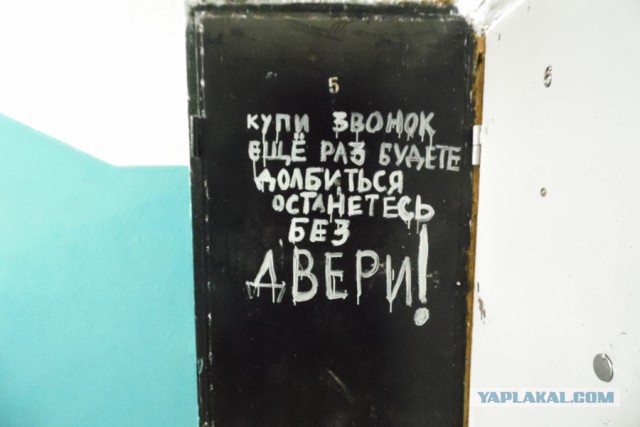 5
6
КУПИ ЗВОНОК
ЕЩЁ РАЗ БУДЕТЕ
ДОЛБИТЬСЯ
ОСТАНЕТЕСЬ
БЕЗ
ДВЕРИ!
YAPLAKAL.COM